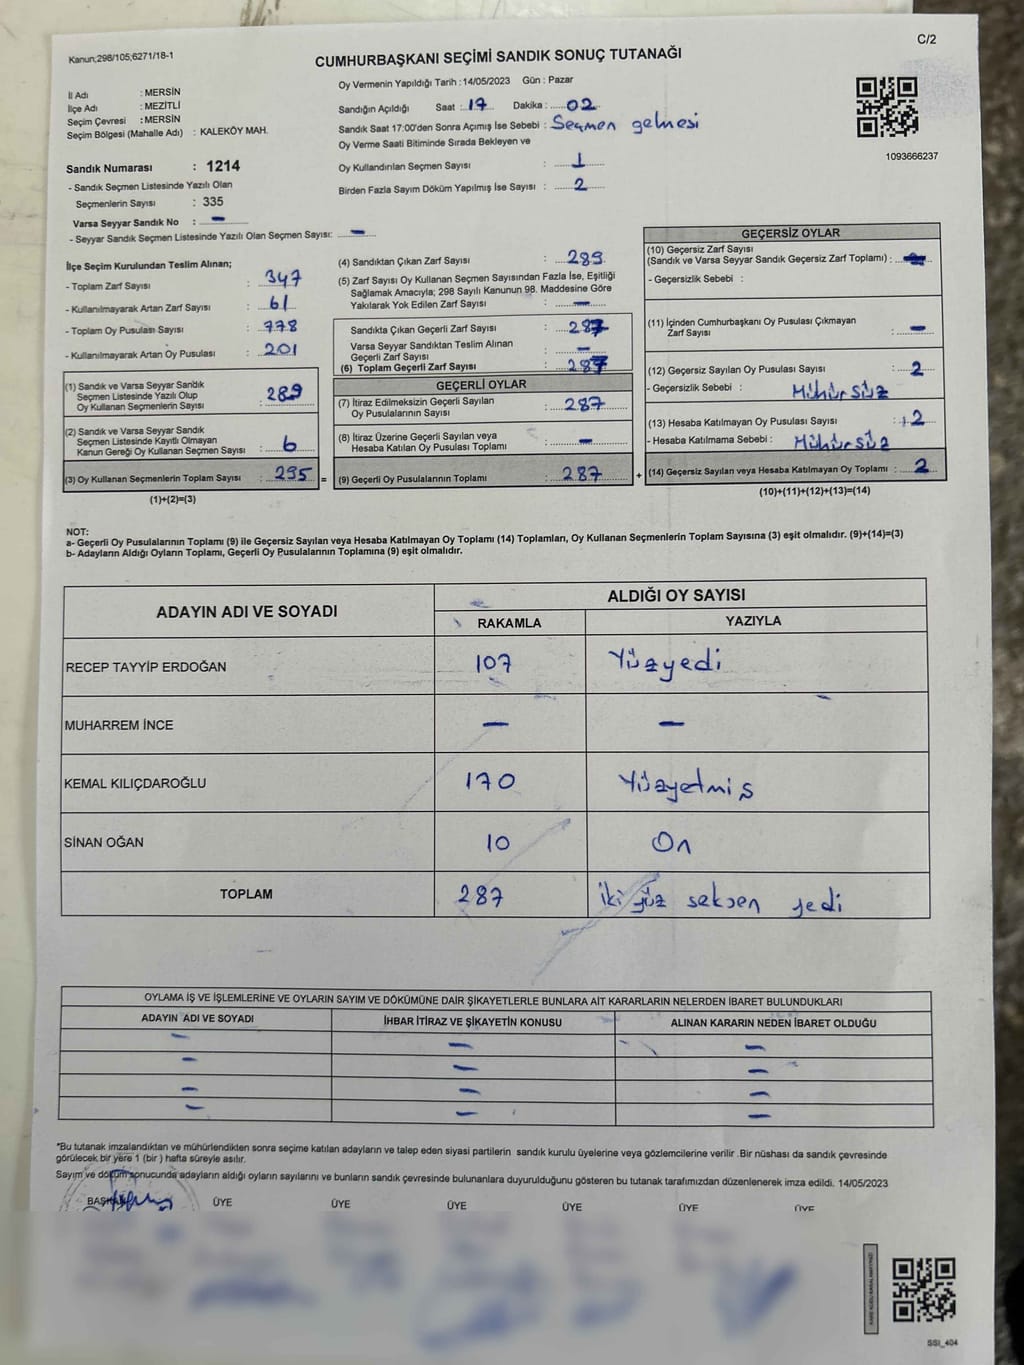 Kanun;298/105;6271/18-1
C/2
CUMHURBAŞKANI SEÇİMİ SANDIK SONUÇ TUTANAĞI
İl Adı : MERSİN
İlçe Adı : MEZİTLİ
Seçim Çevresi : MERSİN
Seçim Bölgesi (Mahalle Adı) : KALEKÖY MAH.
Sandık Numarası : 1214
- Sandık Seçmen Listesinde Yazılı Olan
Seçmenlerin Sayısı : 335
Varsa Seyyar Sandık No : -
- Seyyar Sandık Seçmen Listesinde Yazılı Olan Seçmen Sayısı: -
Oy Vermenin Yapıldığı Tarih : 14/05/2023 Gün : Pazar
Sandığın Açıldığı Saat : 17 Dakika : 02
Sandık Saat 17:00'den Sonra Açımış İse Sebebi : Seçmen gelmesi
Oy Verme Saati Bitiminde Sırada Bekleyen ve
Oy Kullandırılan Seçmen Sayısı : 1
Birden Fazla Sayım Döküm Yapılmış İse Sayısı : 2
1093666237
İlçe Seçim Kurulundan Teslim Alınan;
- Toplam Zarf Sayısı : 347
- Kullanılmayarak Artan Zarf Sayısı : 61
- Toplam Oy Pusulası Sayısı : 778
- Kullanılmayarak Artan Oy Pusulası : 201
(1) Sandık ve Varsa Seyyar Sandık
Seçmen Listesinde Yazılı Olup
Oy Kullanan Seçmenlerin Sayısı : 289
(2) Sandık ve Varsa Seyyar Sandık
Seçmen Listesinde Kayıtlı Olmayan
Kanun Gereği Oy Kullanan Seçmen Sayısı : 6
(3) Oy Kullanan Seçmenlerin Toplam Sayısı : 295 =
(1)+(2)=(3)
(4) Sandıktan Çıkan Zarf Sayısı : 289
(5) Zarf Sayısı Oy Kullanan Seçmen Sayısından Fazla İse, Eşitliği
Sağlamak Amacıyla; 298 Sayılı Kanunun 98. Maddesine Göre
Yakılarak Yok Edilen Zarf Sayısı : -
Sandıkta Çıkan Geçerli Zarf Sayısı : 287
Varsa Seyyar Sandıktan Teslim Alınan
Geçerli Zarf Sayısı : -
(6) Toplam Geçerli Zarf Sayısı : 287
GEÇERLİ OYLAR
(7) İtiraz Edilmeksizin Geçerli Sayılan
Oy Pusulalarının Sayısı : 287
(8) İtiraz Üzerine Geçerli Sayılan veya
Hesaba Katılan Oy Pusulası Toplamı : -
(9) Geçerli Oy Pusulalarının Toplamı : 287 +
GEÇERSİZ OYLAR
(10) Geçersiz Zarf Sayısı
(Sandık ve Varsa Seyyar Sandık Geçersiz Zarf Toplamı) :
- Geçersizlik Sebebi :
(11) İçinden Cumhurbaşkanı Oy Pusulası Çıkmayan
Zarf Sayısı : -
(12) Geçersiz Sayılan Oy Pusulası Sayısı : 2
- Geçersizlik Sebebi : Mühürsüz
(13) Hesaba Katılmayan Oy Pusulası Sayısı : 2
- Hesaba Katılmama Sebebi : Mühürsüz
(14) Geçersiz Sayılan veya Hesaba Katılmayan Oy Toplamı : 2
(10)+(11)+(12)+(13)=(14)
NOT:
a- Geçerli Oy Pusulalarının Toplamı (9) ile Geçersiz Sayılan veya Hesaba Katılmayan Oy Toplamı (14) Toplamları, Oy Kullanan Seçmenlerin Toplam Sayısına (3) eşit olmalıdır. (9)+(14)=(3)
b- Adayların Aldığı Oyların Toplamı, Geçerli Oy Pusulalarının Toplamına (9) eşit olmalıdır.
ADAYIN ADI VE SOYADI ALDIĞI OY SAYISI
RAKAMLA YAZIYLA
RECEP TAYYİP ERDOĞAN 107 Yüzyedi
MUHARREM İNCE - -
KEMAL KILIÇDAROĞLU 170 Yüzyetmiş
SİNAN OĞAN 10 On
TOPLAM 287 iki yüz seksen yedi
OYLAMA İŞ VE İŞLEMLERİNE VE OYLARIN SAYIM VE DÖKÜMÜNE DAİR ŞİKAYETLERLE BUNLARA AİT KARARLARIN NELERDEN İBARET BULUNDUKLARI
ADAYIN ADI VE SOYADI İHBAR İTİRAZ VE ŞİKAYETİN KONUSU ALINAN KARARIN NEDEN İBARET OLDUĞU
- - -
- - -
- - -
- - -
*Bu tutanak imzalandıktan ve mühürlendikten sonra seçime katılan adayların ve talep eden siyasi partilerin sandık kurulu üyelerine veya gözlemcilerine verilir .Bir nüshası da sandık çevresinde
görülecek bir yere 1 (bir ) hafta süreyle asılır.
Sayım ve döküm sonucunda adayların aldığı oyların sayılarını ve bunların sandık çevresinde bulunanlara duyurulduğunu gösteren bu tutanak tarafımızdan düzenlenerek imza edildi. 14/05/2023
BAŞKAN ÜYE ÜYE ÜYE ÜYE ÜYE ÜYE
SSI_404